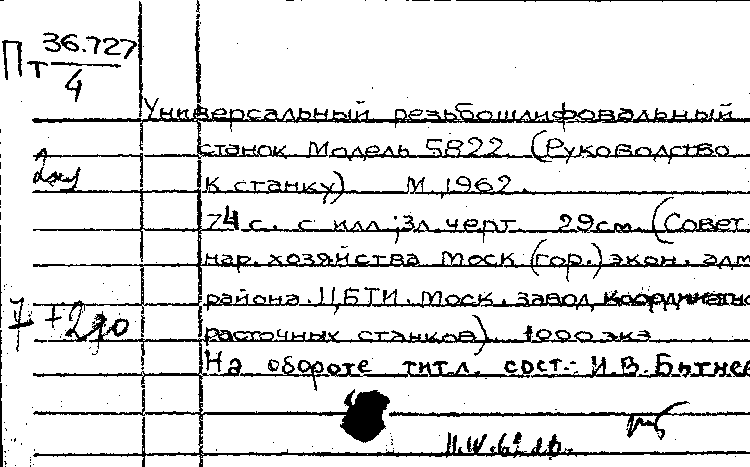 Пт 36.727
4
Универсальный резьбошлифовальный
станок Модель 5822. (Руководство
к станку). М, 1962.
74 с. с илл; 3л. черт. 29см. (Совет
нар. хозяйства Моск (гор.) экон. адм
района. ЦБТИ. Моск. завод координатно
расточных станков). 1000 экз
На обороте титл. сост.: И.В.
7 + 2